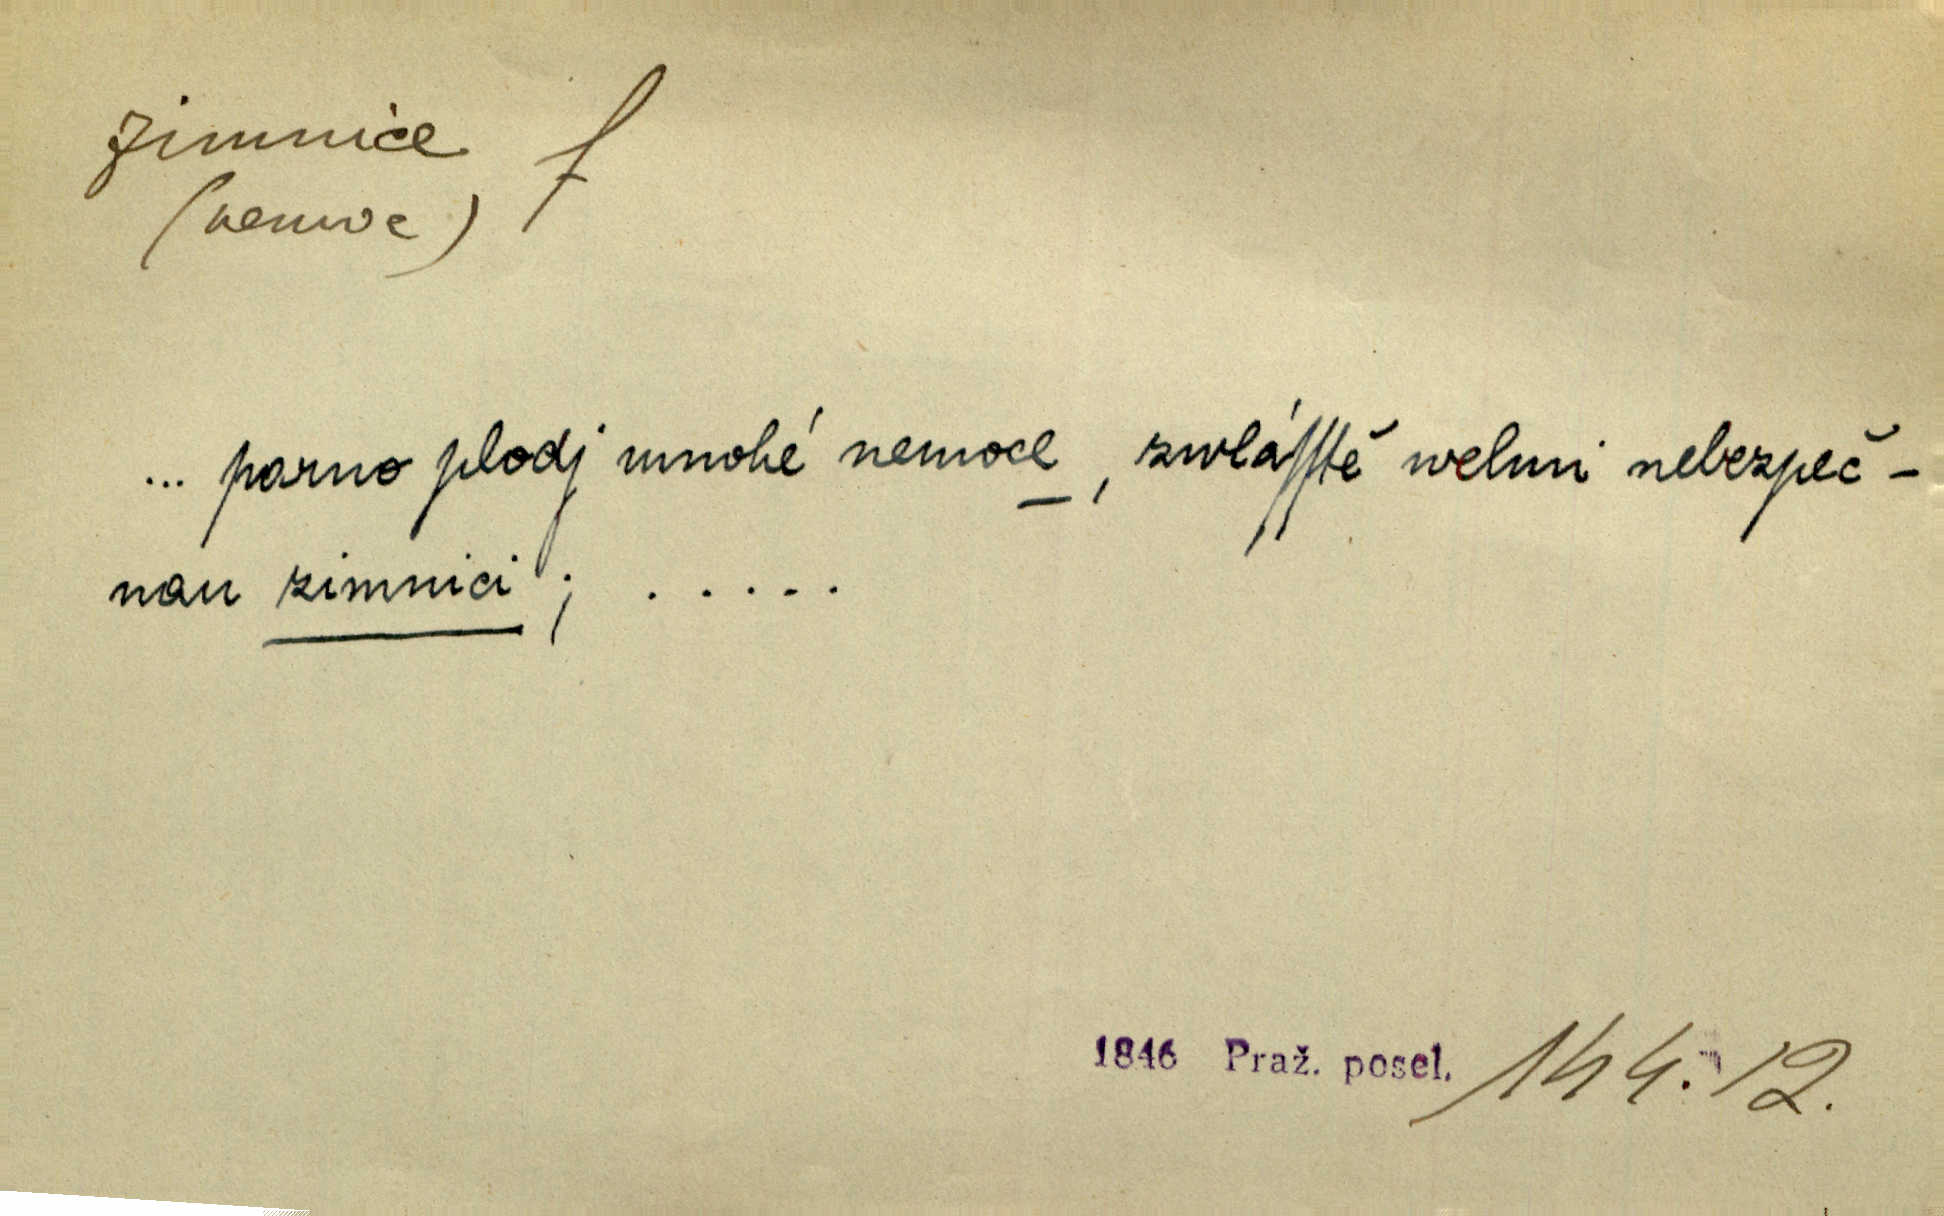 zimnice f
(nemoc)
... parno plodj mnohé nemoce, zwlásstě welmi nebezpeč-
nau zimnici; .....
1846 Praž. posel. 144. 12.